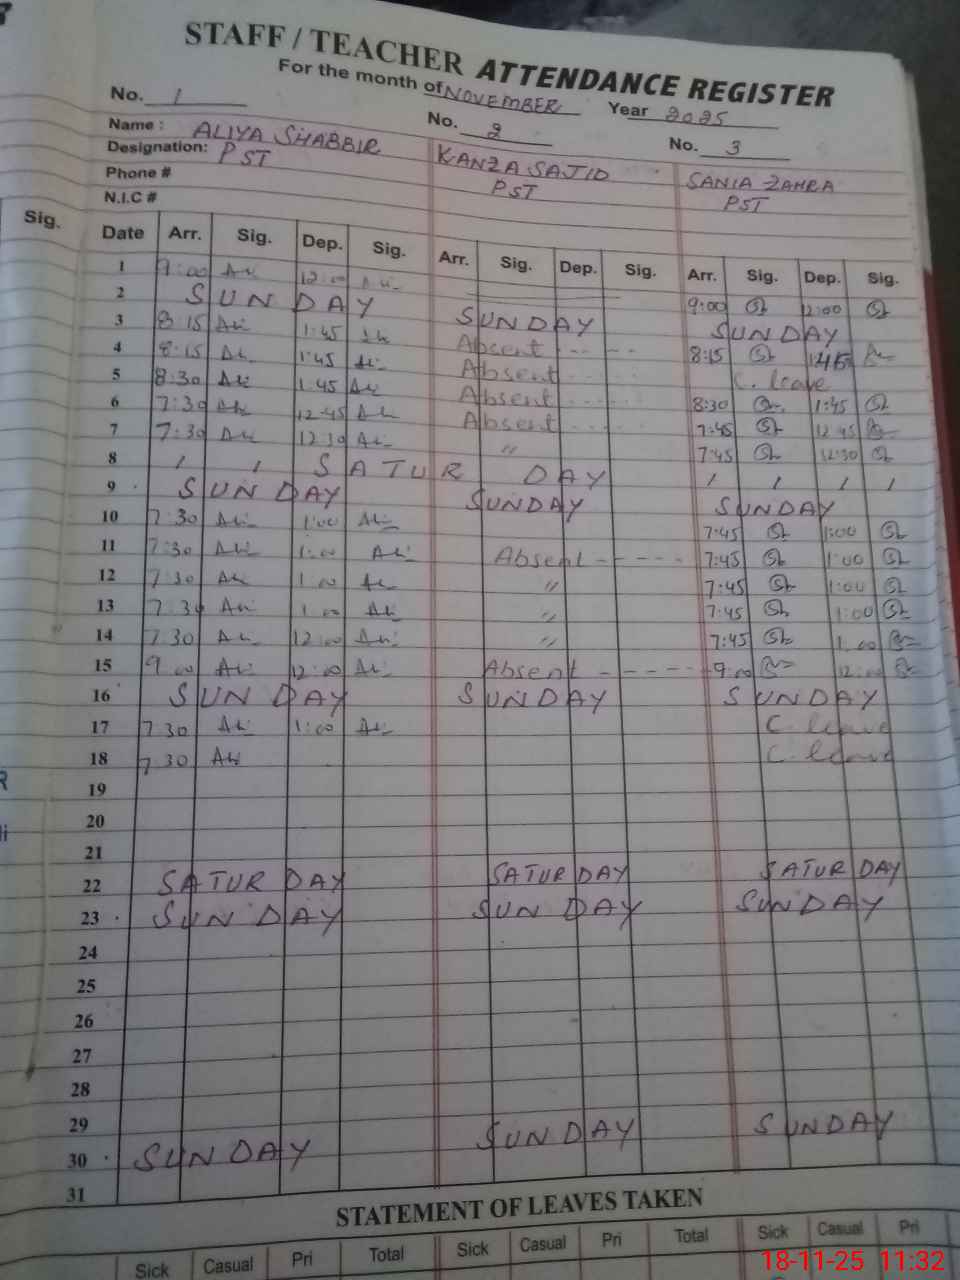 STAFF / TEACHER ATTENDANCE REGISTER
For the month of NOVEMBER Year 2025
No. 1 No. 2 No. 3
Name : ALIYA SHABBIR KANZA SAJID SANIA ZAHRA
Designation: PST PST PST
Phone #
N.I.C #
Sig. Date Arr. Sig. Dep. Sig. Arr. Sig. Dep. Sig. Arr. Sig. Dep. Sig.
1 9:00 12:00 9:00 12:00
2 SUNDAY SUNDAY SUNDAY
3 8:15 1:45 Absent 8:15 1:45
4 8:15 1:45 Absent C. leave
5 8:30 1:45 Absent 8:30 1:45
6 7:30 12:45 Absent 7:45 12:45
7 7:30 12:30 " 7:45 12:30
8 / / SATURDAY / / / /
9 SUNDAY SUNDAY SUNDAY
10 7:30 1:00 7:45 1:00
11 7:30 1:00 Absent - - - - - 7:45 1:00
12 7:30 1:00 " 7:45 1:00
13 7:30 1:00 " 7:45 1:00
14 7:30 12:00 " 7:45 1:00
15 9:00 12:00 Absent - - - - 9:00 12:00
16 SUNDAY SUNDAY SUNDAY
17 7:30 1:00 C. leave
18 7:30 C. leave
19
20
21
22 SATURDAY SATURDAY SATURDAY
23 SUNDAY SUNDAY SUNDAY
24
25
26
27
28
29
30 SUNDAY SUNDAY SUNDAY
31
STATEMENT OF LEAVES TAKEN
Sick Casual Pri Total Sick Casual Pri Total Sick Casual Pri
18-11-25 11:32